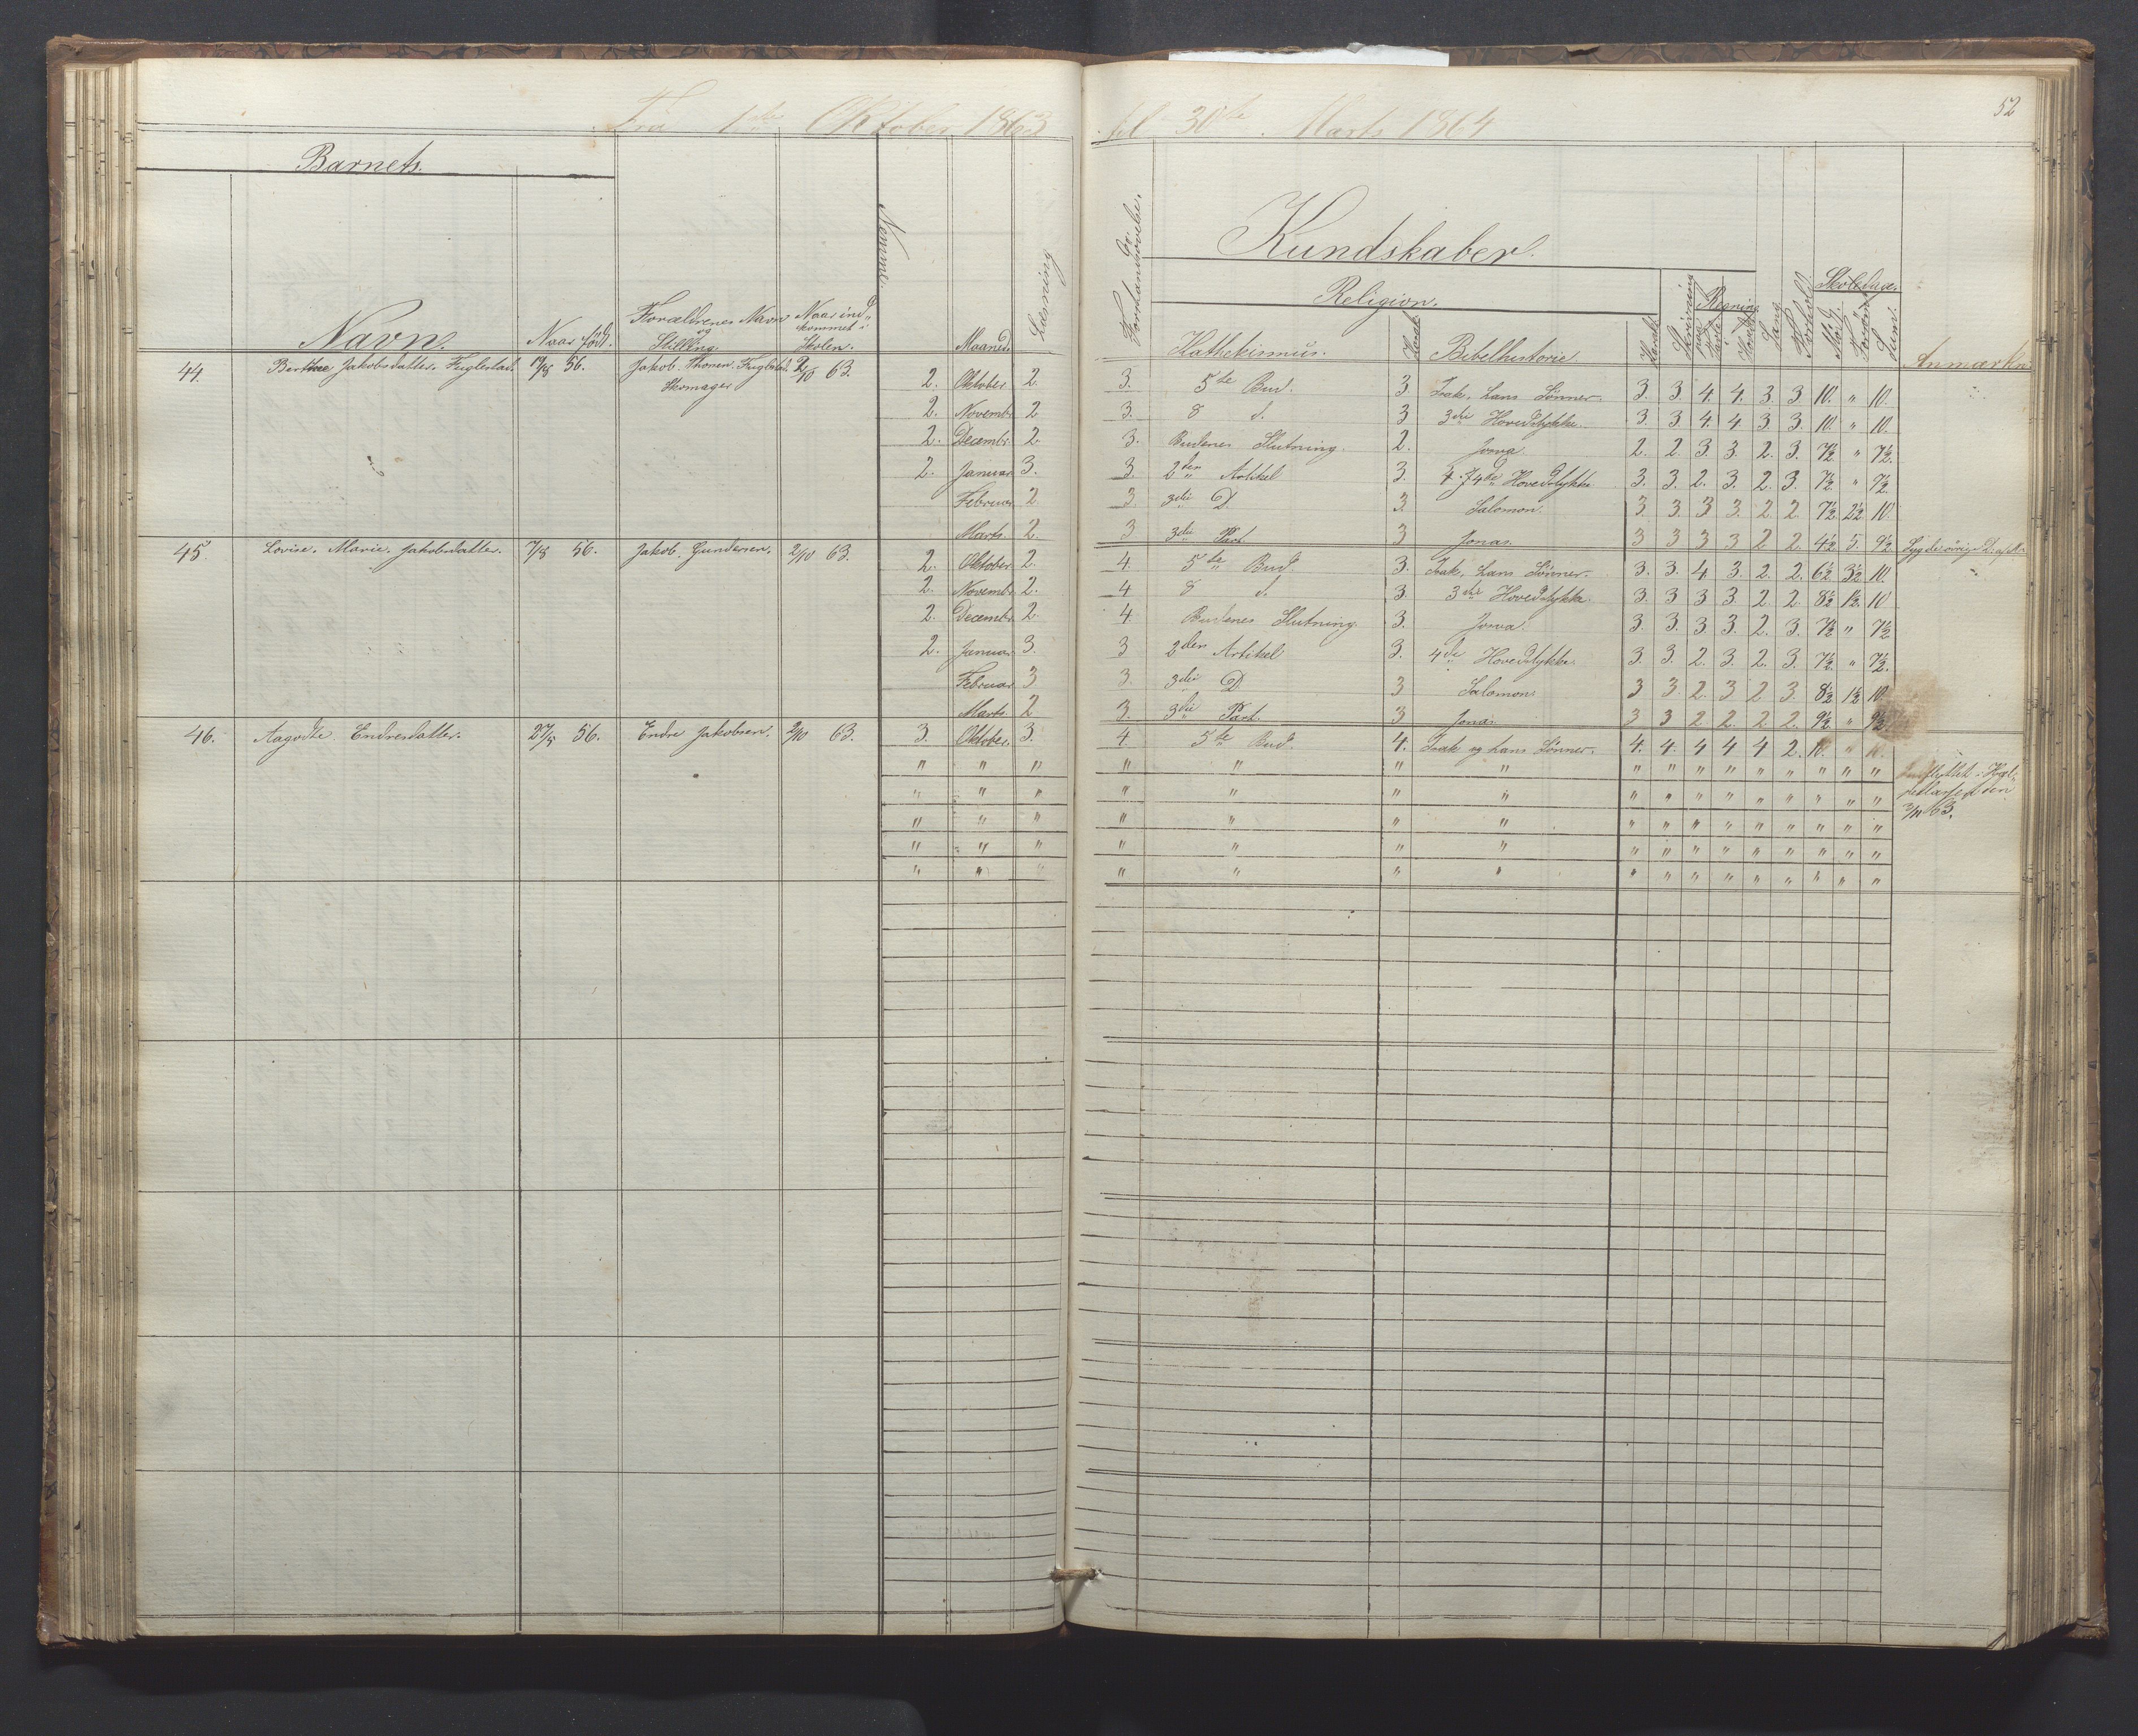 Fra 1ste Oktober 1863 til 30te Marts 1864
52
Barnets.
Kundskaber.
Nemme.
Læsning
Forstandsøvelse.
Religion.
Skrivning
Regning
Sang.
Forhold.
Skoledage.
Navn.
Naar født.
Forældrenes Navn og Stilling
Naar ind- kommet i Skolen.
Maaned.
Kathekismus.
Karak.
Bibelhistorie
Karak.
Mød.
Forsøm.
Sum.
Anmærkn.
44. Berthe Jakobsdatter. Fuglestad. 56. Jakob. Thorsen. Fuglestad. 2/10 63. 2. Oktober 2. 3. 5te Bud. 3 Isak, hans Sønner. 3. 3. 4. 4. 3. 3. 10. " 10.
Skomager
2. Novembr. 2 3. 8 d. 3 3die Hovedstykke. 3. 3 4. 4 3 3. 10. " 10.
2. Decembr. 2. 3. Budenes Slutning. 2. Josva. 2. 2. 3. 3. 2. 3. 7½ " 7½.
2. Januar 3. 3 2den Artikel 3. 4de Hovedstykke 3. 3. 2. 3. 2. 3. 7½. " 7½.
Februar 2 3. 3die D. 3. Salomon. 3 3. 3 3. 2. 2. 7½. 2½ 10.
Marts. 2. 3 3die Part 3 Jonas. 3 3 3 3 2 2. 4½ 5. 9½
45. Lovise. Marie. Jakobsdatter. 7/8 56. Jakob. Gundersen. 2/10 63. 2. Oktober. 2. 4. 5te Bud. 3. Isak, hans Sønner. 3. 3. 4. 3. 2. 2. 6½. 3½. 10.
2. Novembr. 2. 4 8 d. 3. 3die Hovedstykke. 3. 3 3 3. 2 2. 8½ 1½. 10
2. Decembr. 2. 4. Budenes Slutning. 3. Josva. 3. 3. 3. 3. 2. 3. 7½ " 7½
2. Januar 3. 3 2den Artikel 3. 4de Hovedstykke. 3. 3. 2. 3. 2. 3. 7½. " 7½.
Februar 3 3. 3die D. 3 Salomon. 3 3. 2. 3 2 3. 8½ 1½ 10.
Marts. 2 3. 3die Part. 3 Jonas. 3 3 2 2. 2. 2. 9½ " 9½.
46. Aagodte Endresdatter. 56. Endre Jakobsen. 2/10 63. 3. Oktober. 3. 4. 5te Bud. 4. Isak og hans Sønner. 4. 4. 4 4 4 2. 10. " 10.
" " " " " " " " " " " " " " " "
" " " " " " " " " " " " " " " "
63.
" " " " " " " " " " " " " " " "
" " " " " " " " " " " " " " " "
" " " " " " " " " " " " " " " "